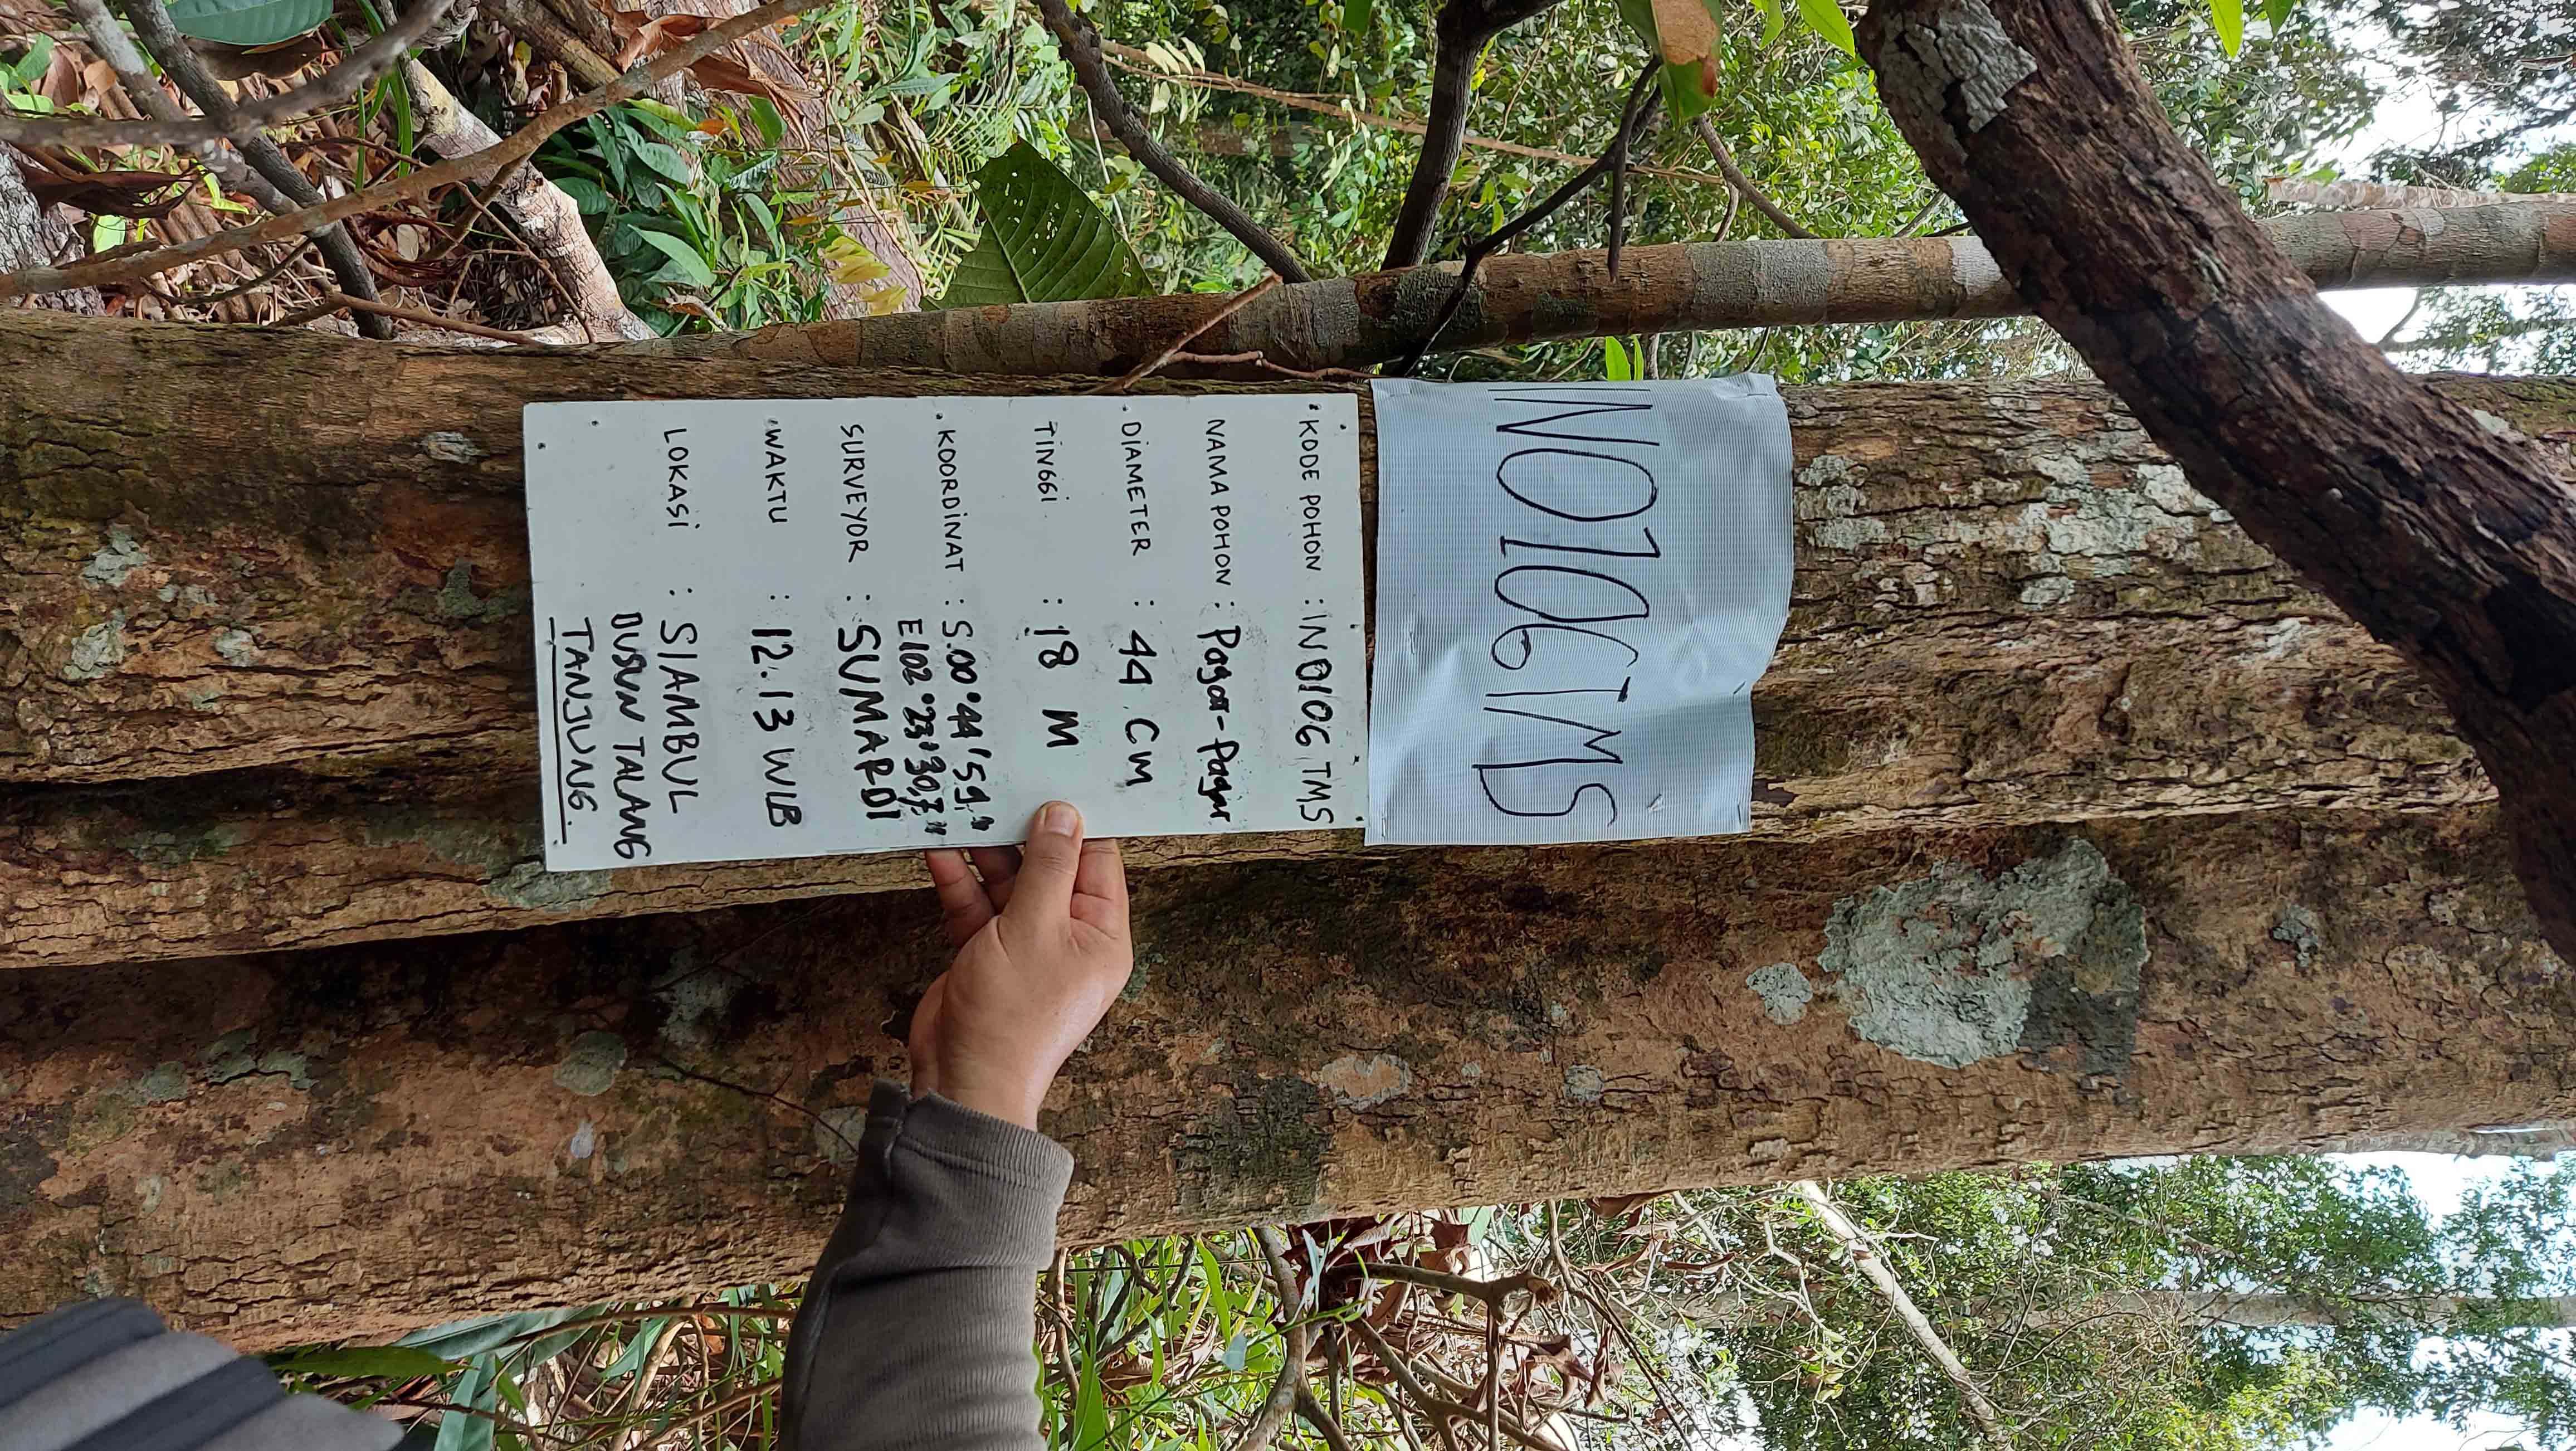 IN0106TMS
KODE POHON : IN0106 TMS
NAMA POHON : Pagar-Pagar
DIAMETER : 44 CM
TINGGI : 18 M
KOORDINAT : S.00°44'59,"
E102°23'30,7"
SURVEYOR : SUMARDI
WAKTU : 12.13 WIB
LOKASI : SIAMBUL
DUSUN TALANG
TANJUNG.